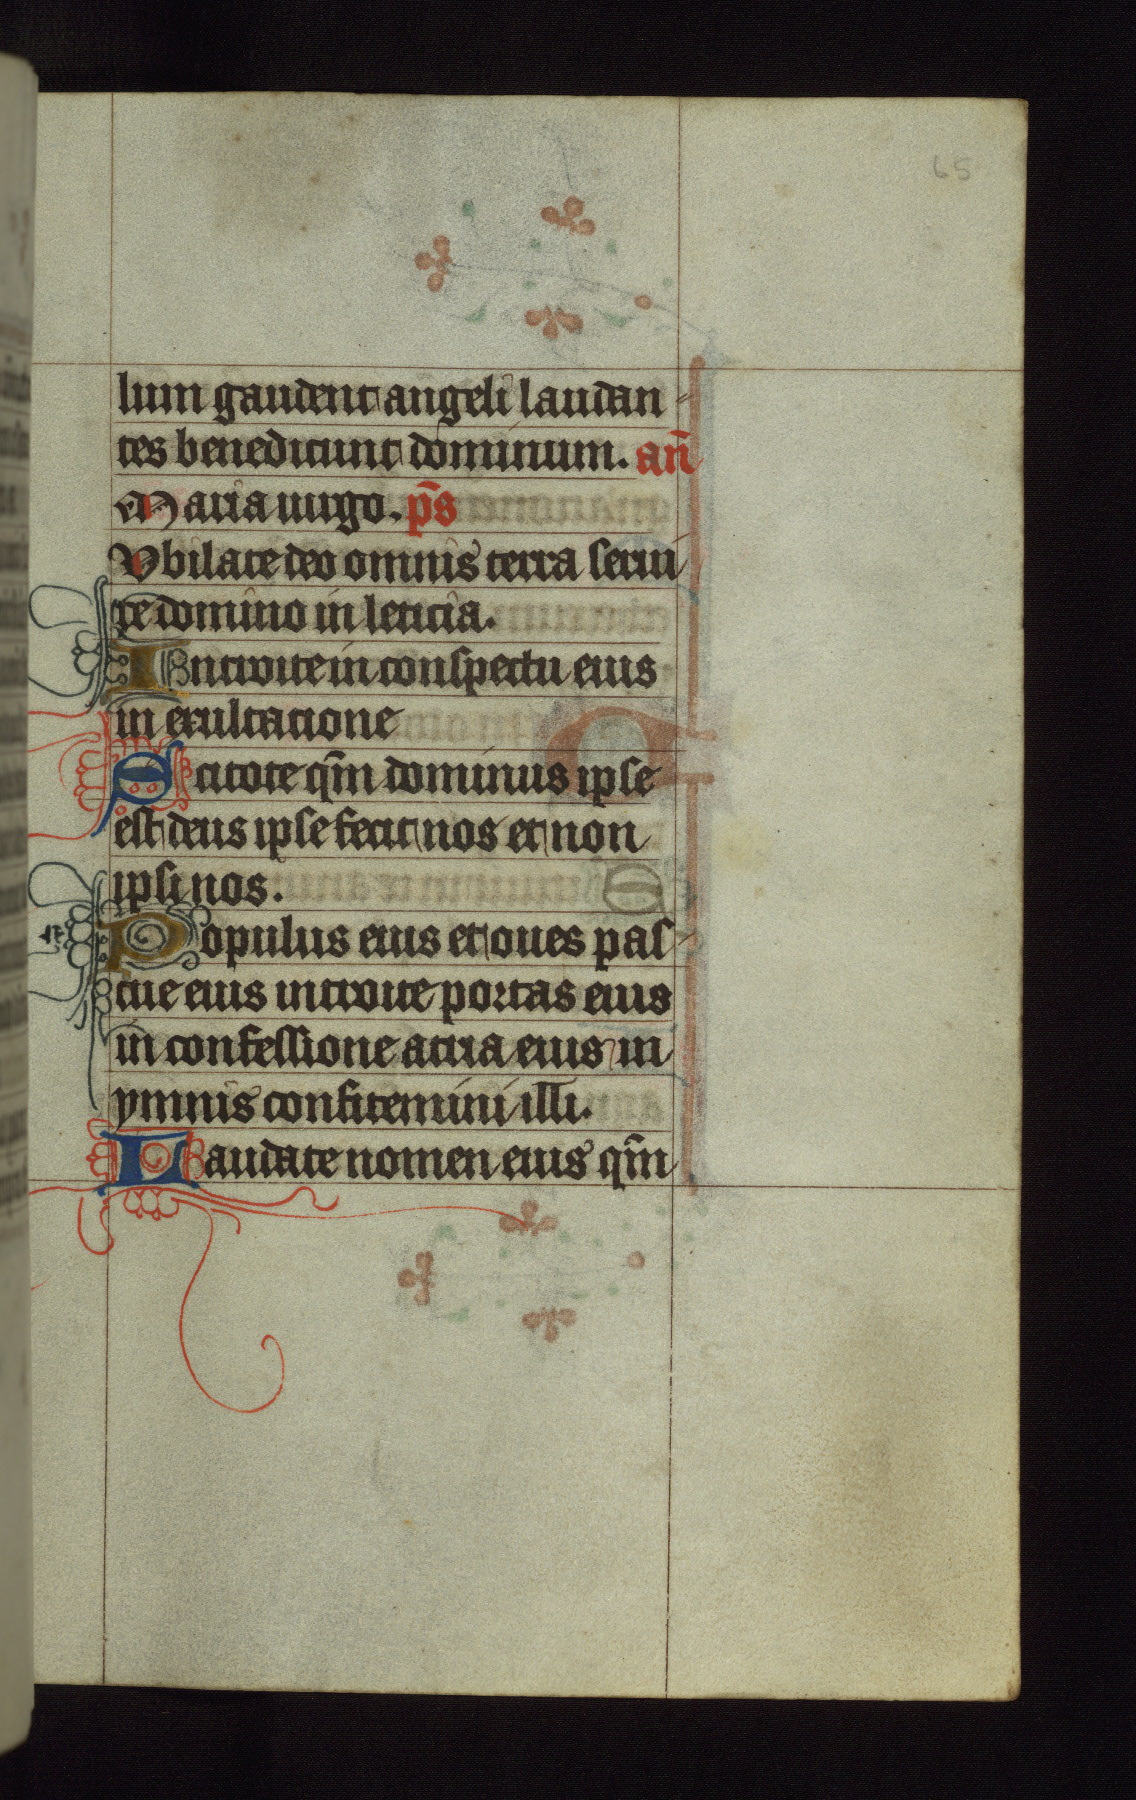 65
lum gaudent angeli laudan
tes benedicunt dominum. an̄
Maria uirgo. p̄s
Iubilate deo omnis terra serui
te domino in leticia.
Introite in conspectu eius
in exultatione
Scitote qm̄ dominus ipse
est deus ipse fecit nos et non
ipsi nos.
Populus eius et oues pas
cue eius introite portas eius
in confessione atria eius in
ymnis confitemini illi.
Laudate nomen eius qm̄